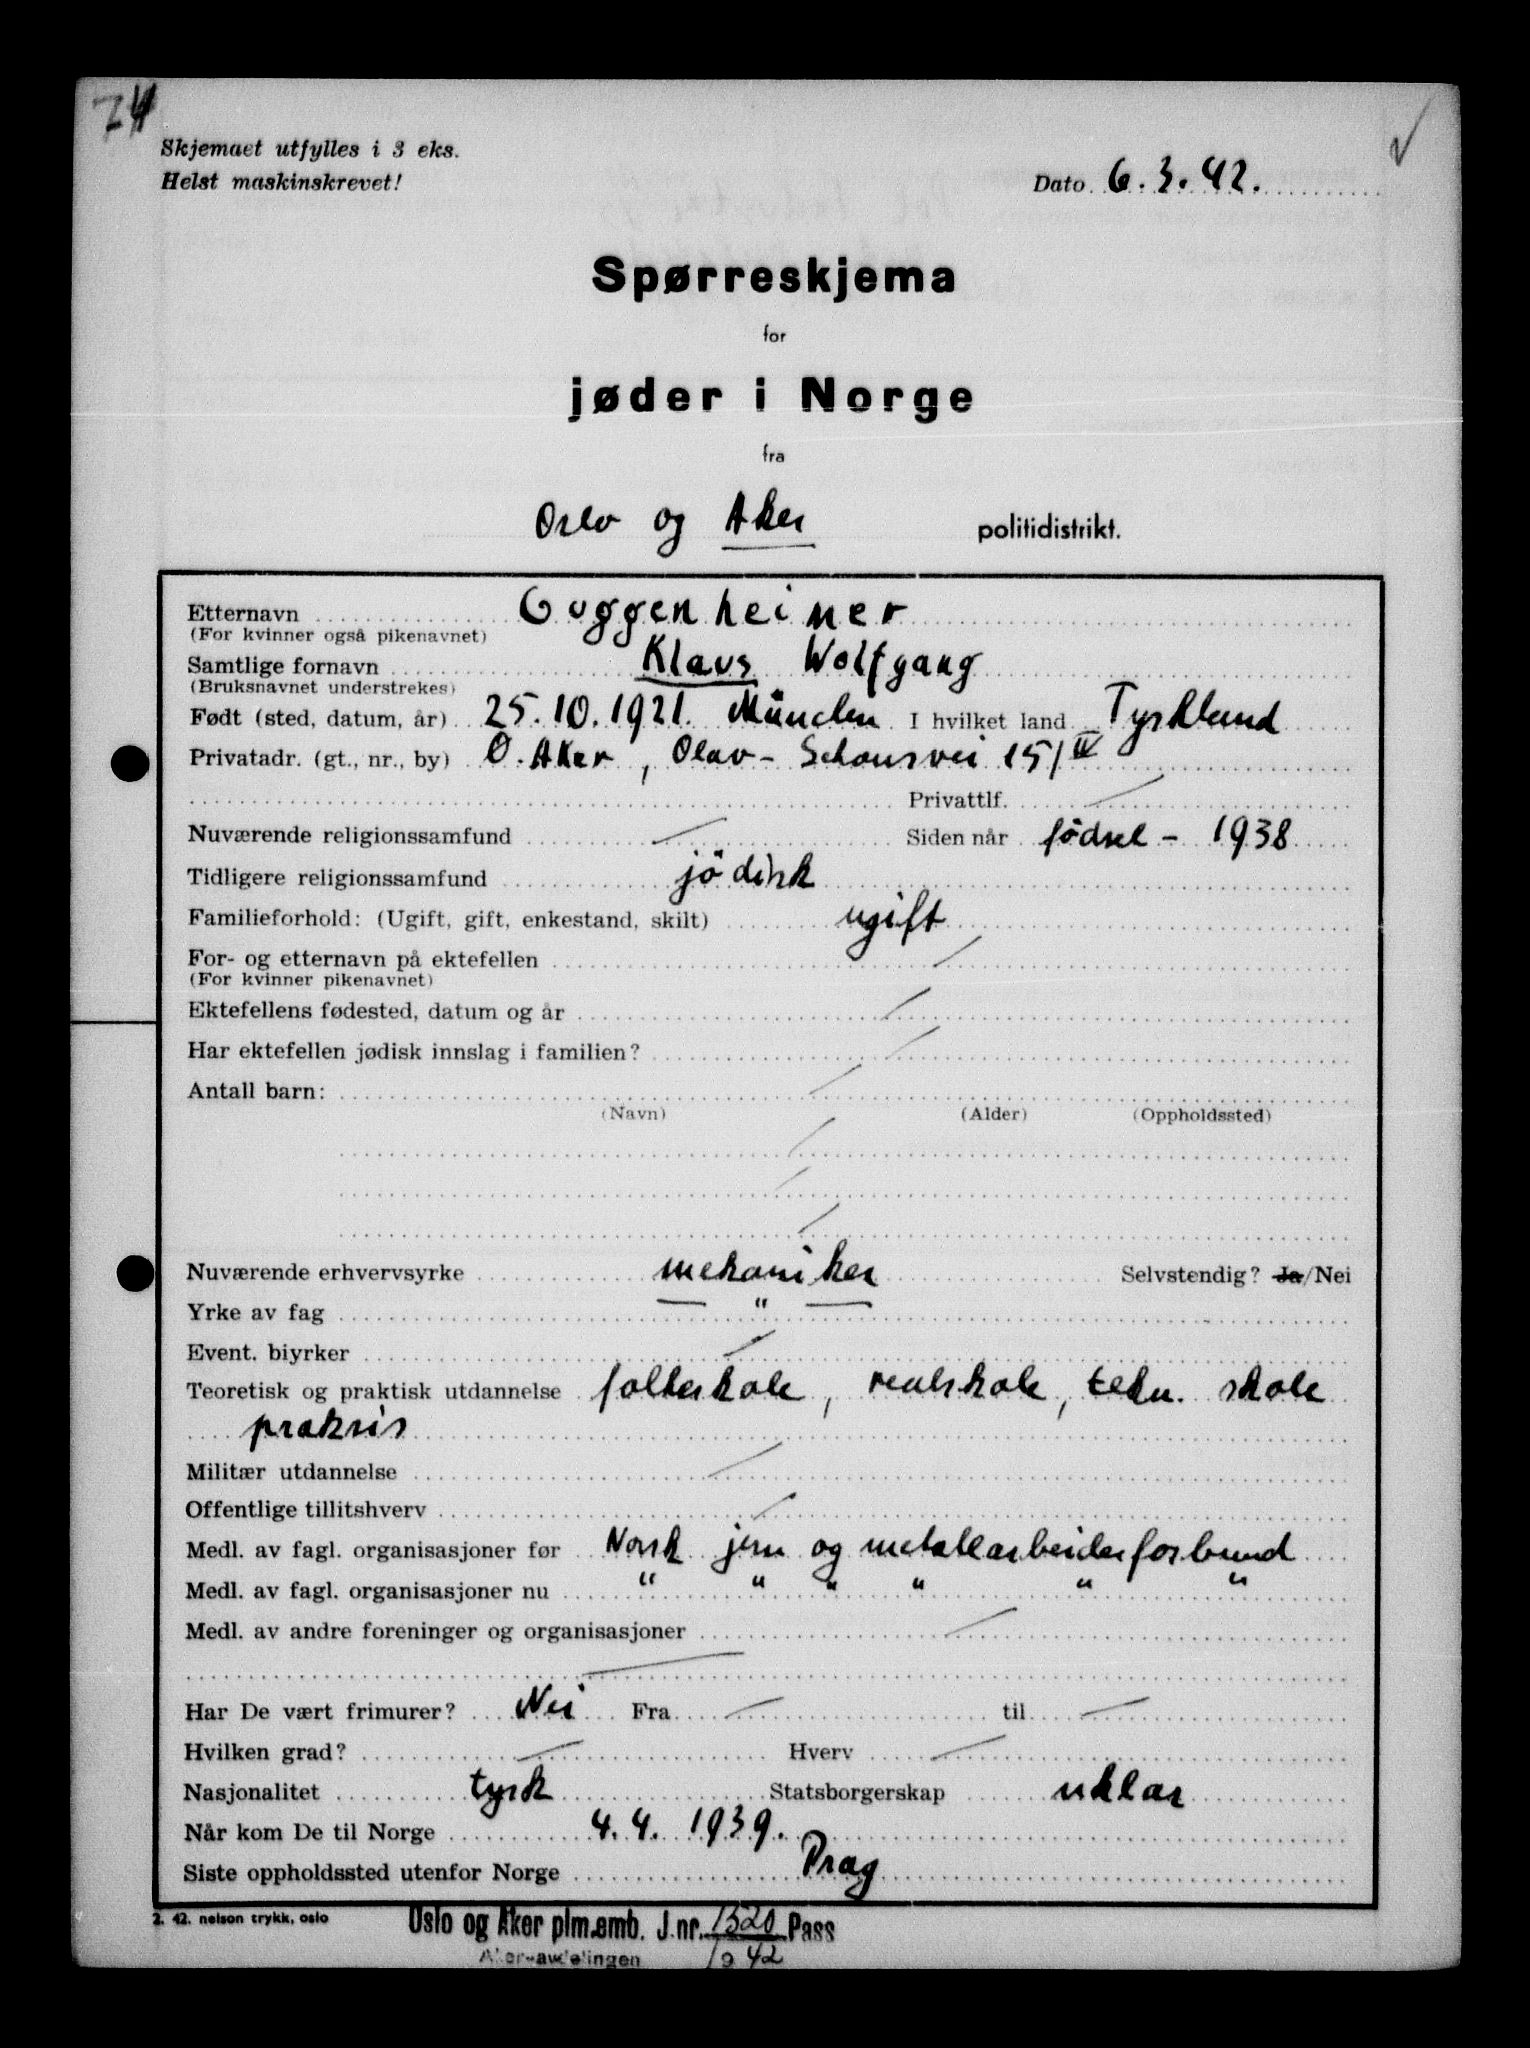 74
Skjemaet utfylles i 3 eks.
Helst maskinskrevet!
Dato 6.3.42.
Spørreskjema
for
jøder i Norge
fra
Oslo og Aker politidistrikt.
Etternavn Guggenheimer
(For kvinner også pikenavnet)
Samtlige fornavn Klaus Wolfgang
(Bruksnavnet understrekes)
Født (sted, datum, år) 25.10.1921. München I hvilket land Tyskland
Privatadr. (gt., nr., by) Ö. Aker, Olav- Schousvei 15/IV
Privattlf. /
Nuværende religionssamfund / Siden når födsel - 1938
Tidligere religionssamfund jödisk
Familieforhold: (Ugift, gift, enkestand, skilt) ugift
For- og etternavn på ektefellen /
(For kvinner pikenavnet)
Ektefellens fødested, datum og år /
Har ektefellen jødisk innslag i familien? /
Antall barn: /
(Navn) (Alder) (Oppholdssted)
/
/
/
Nuværende erhvervsyrke mekaniker Selvstendig? Ja/Nei
Yrke av fag — " —
Event. biyrker /
Teoretisk og praktisk utdannelse folkeskole, realskole, tekn. skole
praksis
Militær utdannelse /
Offentlige tillitshverv /
Medl. av fagl. organisasjoner før Norsk jern og metallarbeiderforbund
Medl. av fagl. organisasjoner nu " " " " " "
Medl. av andre foreninger og organisasjoner /
/
Har De vært frimurer? Nei Fra / til /
Hvilken grad? / Hverv /
Nasjonalitet tysk Statsborgerskap uklar
Når kom De til Norge 4.4. 1939.
Siste oppholdssted utenfor Norge Prag
2. 42. nelson trykk, oslo
Oslo og Aker plm.emb. J.nr. 1320 Pass
Aker-avdelingen 19 42